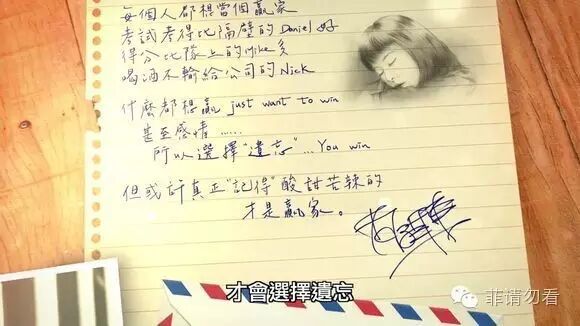 每個人都想當個贏家
考試考得比隔壁的 Daniel 好
得分比隊上的 Mike 多
喝酒不輸給公司的 Nick
什麼都想贏 just want to win
甚至感情……
所以選擇"遺忘"…You win
但或許真正"記得"酸甜苦辣的
才是贏家。
才會選擇遺忘
菲请勿看